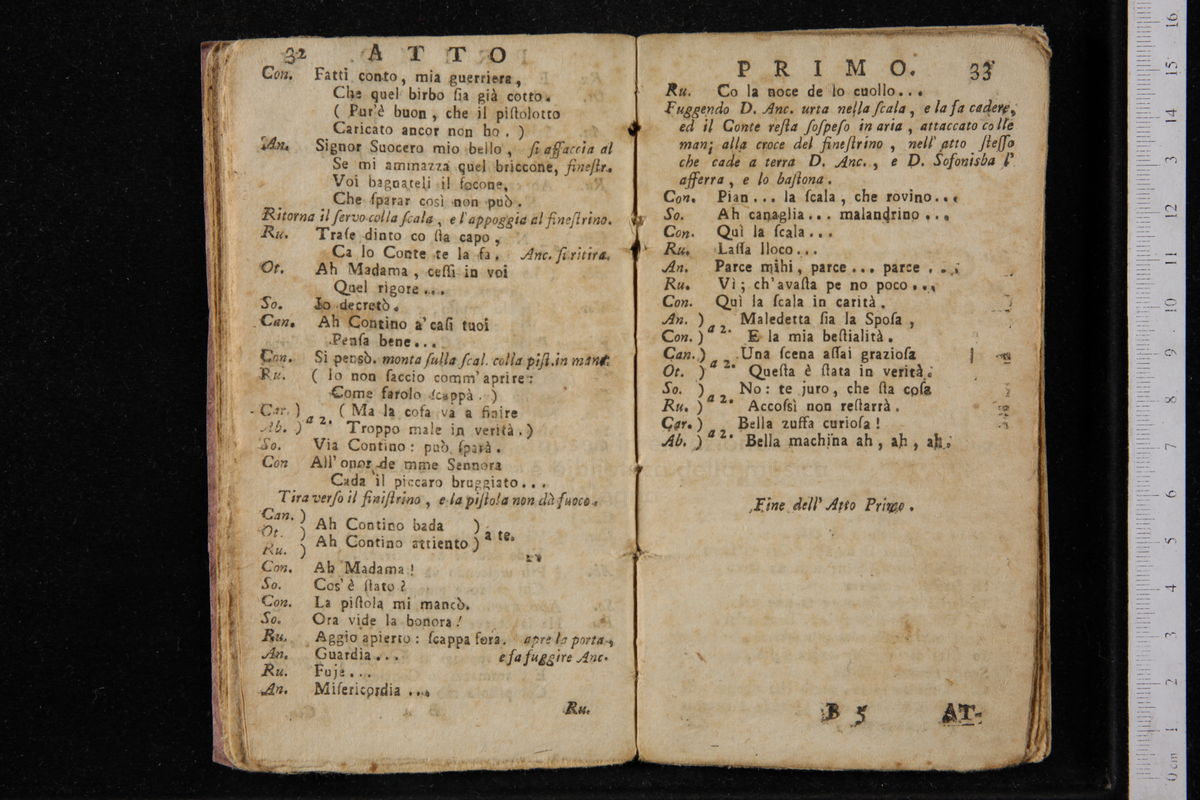 32 ATTO
Con. Fatti conto, mia guerriera,
Che quel birbo ſia già cotto.
( Pur'è buon, che il piſtolotto
Caricato ancor non ho. )
An. Signor Suocero mio bello, ſi affaccia al
Se mi ammazza quel briccone, fineſtr.
Voi bagnateli il focone,
Che ſparar così non può.
Ritorna il ſervo colla ſcala, e l'appoggia al fineſtrino.
Ru. Traſe dinto co ſta capo,
Ca lo Conte te la fa. Anc. ſi ritira.
Ot. Ah Madama, ceſſi in voi
Quel rigore...
So. Io decretò.
Can. Ah Contino a' caſi tuoi
Penſa bene...
Con. Si pensò. monta ſulla ſcal. colla piſt. in mano.
Ru. ( Io non ſaccio comm' aprire:
Come farolo ſcappà. )
Car. ) a 2. ( Ma la coſa va a finire
Ab. ) Troppo male in verità. )
So. Via Contino: può ſparà.
Con All' onor de mme Sennora
Cada il piccaro bruggiato...
Tira verſo il finiſtrino, e la piſtola non dà fuoco.
Can. )
Ot. ) Ah Contino bada )
Ru. ) Ah Contino attiento ) a te.
Con. Ah Madama!
So. Cos' è ſtato?
Con. La piſtola mi mancò.
So. Ora vide la bonora!
Ru. Aggio apierto: ſcappa fora. apre la porta,
An. Guardia... e fa fuggire Anc.
Ru. Fuje...
An. Miſericordia...
Ru.
PRIMO. 33
Ru. Co la noce de lo cuollo...
Fuggendo D. Anc. urta nella ſcala, e la fa cadere,
ed il Conte reſta ſoſpeſo in aria, attaccato colle
mani alla croce del fineſtrino, nell' atto ſteſſo
che cade a terra D. Anc., e D. Sofonisba l'
afferra, e lo baſtona.
Con. Pian... la ſcala, che rovino...
So. Ah canaglia... malandrino...
Con. Quì la ſcala...
Ru. Laſſa lloco...
An. Parce mihi, parce... parce...
Ru. Vì; ch'avaſta pe no poco...
Con. Quì la ſcala in carità.
An. ) a 2. Maledetta ſia la Spoſa,
Con. ) E la mia beſtialità.
Can. ) a 2. Una ſcena aſſai grazioſa
Ot. ) Queſta è ſtata in verità.
So. ) a 2. No: te juro, che ſta coſa
Ru. ) Accoſsì non reſtarrà.
Car. ) a 2. Bella zuffa curioſa!
Ab. ) Bella machina ah, ah, ah.
Fine dell' Atto Primo.
B 5 AT-